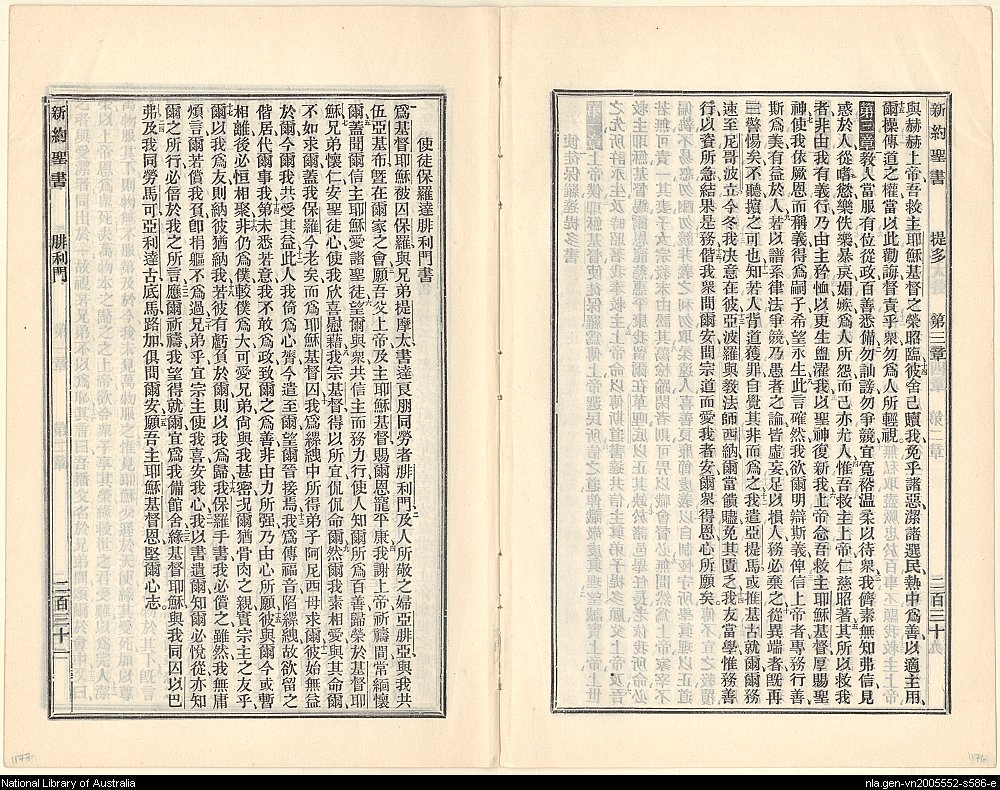 新約聖書　提多　第三章　二百三十
與赫赫上帝吾救主耶穌基督之榮昭臨彼舍己贖我免乎諸惡潔諸選民熱中爲善以適主用
爾操傳道之權當以此勸誨督責乎衆勿爲人所輕視
第三章教人當服有位從政百善悉備勿訕謗勿爭競宜寬裕温柔以待衆我儕素無知弗信見
惑於人從嗜慾樂佚樂暴戾媢嫉爲人所怨而己亦尤人惟吾救主上帝仁慈昭著其所以救我
者非由我有義行乃由主矜恤以更生盥濯我以聖神復新我上帝念吾救主耶穌基督厚賜聖
神使我依厥恩而稱義得爲嗣子希望永生此言確然我欲爾明辯斯義俾信上帝者專務行善
斯爲美有益於人若以譜系律法爭競乃愚者之論皆虛妄足以損人務必棄之從異端者旣再
三警惕矣不聽擯之可也知若人背道獲罪自覺其非而爲之我遣亞提馬或推基古就爾爾務
速至尼哥波立今冬我决意在彼亞波羅與教法師西納爾當餽贐免其匱乏我友當學惟務善
行以資所急結果是務偕我衆問爾安問宗道而愛我者安爾衆得恩心所願矣
使徒保羅達腓利門書
爲基督耶穌被囚保羅與兄弟提摩太書達良朋同勞者腓利門及人所敬之婦亞腓亞與我共
伍亞基布曁在爾家之會願吾父上帝及主耶穌基督賜爾恩寵平康我謝上帝祈禱間常緬懷
爾蓋聞爾信主耶穌愛諸聖徒望爾與衆共信主而務力行使人知爾所爲百善歸榮於基督耶
穌兄弟懷仁安聖徒心使我欣喜慰藉我宗基督得以所宜侃侃命爾然爾我素相愛與其命爾
不如求爾蓋我保羅今老矣而爲耶穌基督囚我爲縲絏中所得弟子阿尼西母求爾彼始無益
於爾今爾我共受其益此人我倚爲心膂今遣至爾望爾晉接焉我爲傳福音陷縲絏故欲留之
偕居代爾事我第未悉若意我不敢爲政致爾之爲善非由力所强乃由心所願彼與爾今或暫
相離後必恒相聚非仍爲僕較僕爲大可愛兄弟尙與我甚密况爾猶骨肉之親實宗主之友乎
爾以我爲友則納彼猶納我若彼有虧負於爾則以我爲歸我保羅手書我必償之雖然我無庸
煩言爾若償我負卽捐軀不爲過兄弟乎宜宗主使我喜安我心我以書遺爾知爾必悅從亦知
爾之所行必倍於我之所言應爾祈禱我望得就爾宜爲我備館舍緣基督耶穌與我同囚以巴
弗及我同勞馬可亞利達古底馬路加俱問爾安願吾主耶穌基督恩堅爾心志
新約聖書　腓利門　二百三十一
National Library of Australia
nla.gen-vn2005552-s586-e